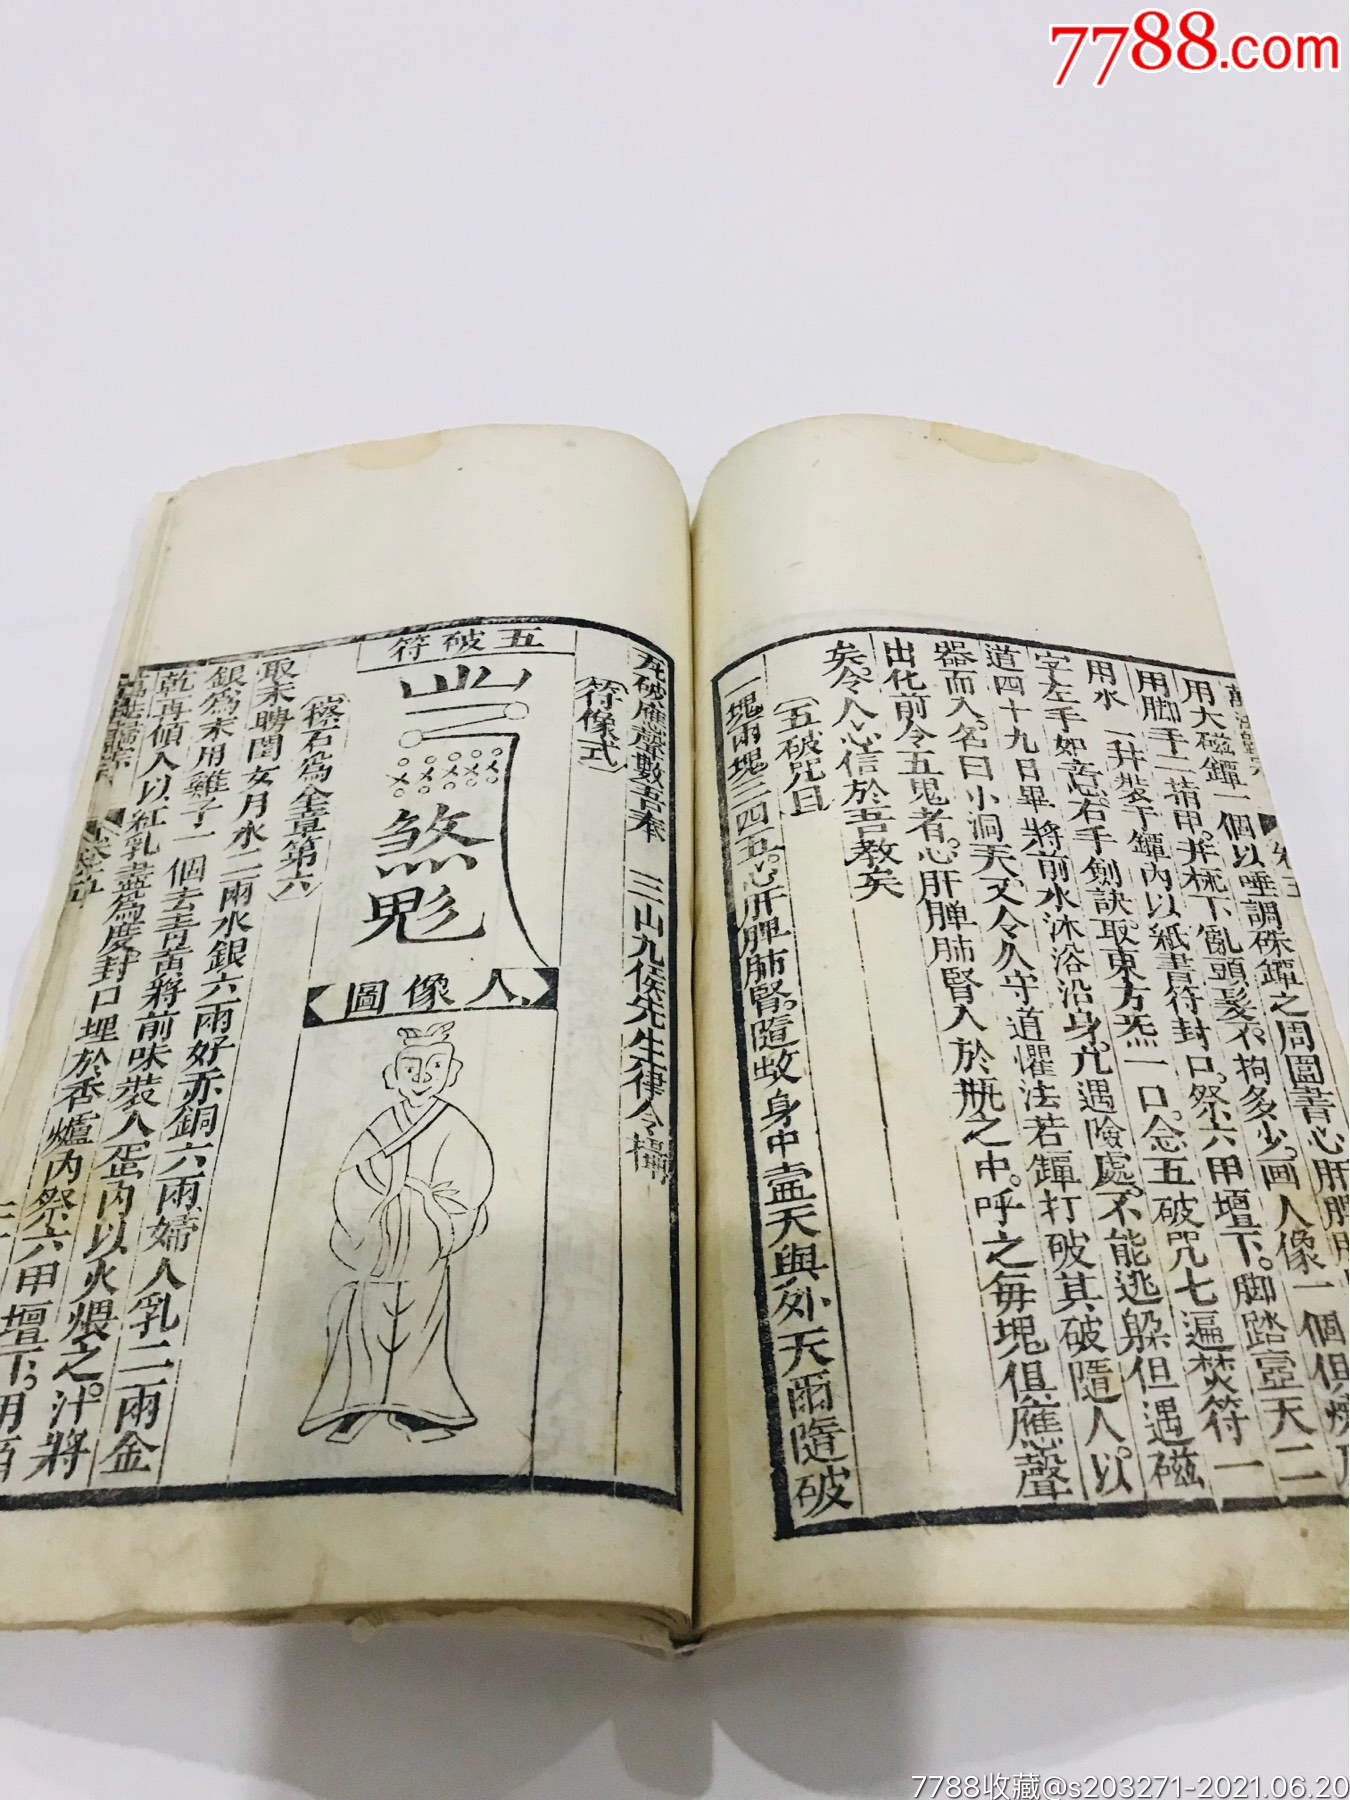 7788.com
用大磁鐔一個以唾調硃鐔之周圍書心肝脾
用脚手二指甲并梳下亂頭髮不拘多少画人像一個俱燒
用水一升裝于鐔內以紙書符封口祭六甲壇下脚踏壺天二
字左手如意右手劍訣取東方炁一口念五破咒七遍焚符一
道四十九日畢將前水沐浴沿身凢遇險處不能逃躲但遇磁
器而入名曰小洞天又令久守道懼法若鐔打破其破隨人以
出化前令五鬼者心肝脾肺腎入於瓶之中呼之每塊俱應聲
矣令人心信於吾教矣
五破咒曰
一塊兩塊三四五心肝脾肺腎隨蚊身中壼天與外天爾隨破
万破應聲數吾奉 三山九侯先生律令攝
符像式
五破符
煞鬽
人像圖
㨰石爲金章第六
取未聘閨女月水二兩水銀六兩好赤銅六兩婦人乳二兩金
銀爲末用雞子一個去青黃將前味裝入蛋內以火煨之汁將
乾再傾入以紅乳盡爲度封口埋於香爐內祭六甲壇下用百
7788收藏@s203271-2021.06.20